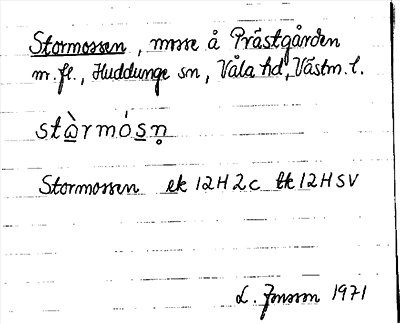 Stormossen, mosse å Prästgården
m.fl., Huddunge sn, Våla hd, Västm. l.
stàrmósn̥
Stormossen ek 12H2c tk 12H SV
L. Jonsson 1971